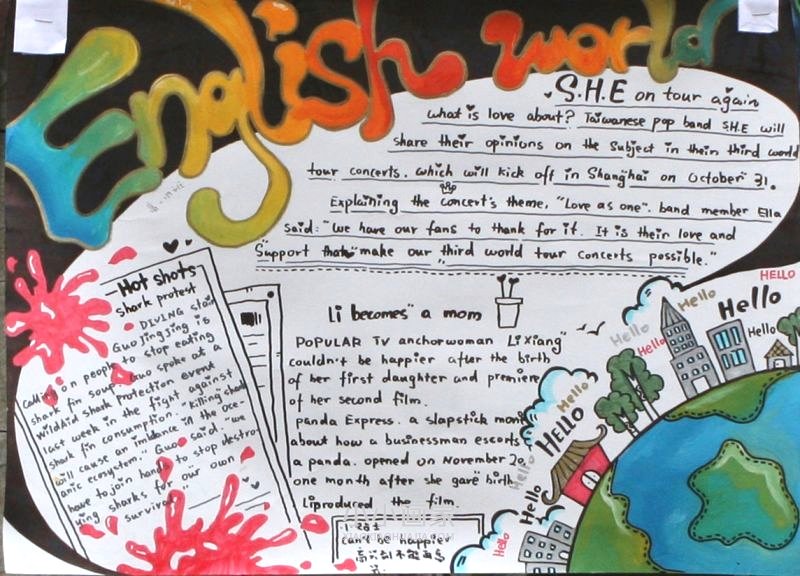 English world
S.H.E on tour again
what is love about? Taiwanese pop band S.H.E will
share their opinions on the Subject in their third world
tour concerts. which will kick off in Shanghai on October 31.
Explaining the concert's theme, "Love as one". band member Ella
said: "We have our fans to thank for it. It is their love and
Support that make our third world tour concerts possible."
Hot shots
shark protest
DIVING star
Guo Jingjing is
calling on people to stop eating
shark fin soup. Guo spoke at a
WildAid Shark Protection event
last week in the fight against
shark fin consumption. "Killing shark
will cause an imbalance in the oce-
anic ecosystem." Guo said. "we
have to join hands to stop destro-
ying sharks for our own
survival
Li becomes a mom
POPULAR TV anchorwoman Li Xiang
couldn't be happier after the birth
of her first daughter and premiere
of her second film.
Panda Express. a slapstick
about how a businessman escorts
a panda. opened on November 20
one month after she gave birth
Li produced the film
can't be happier
HELLO
Hello
Hello
Hello
Hello
Hello
Hello
HELLO
Hello
Hello
Hello